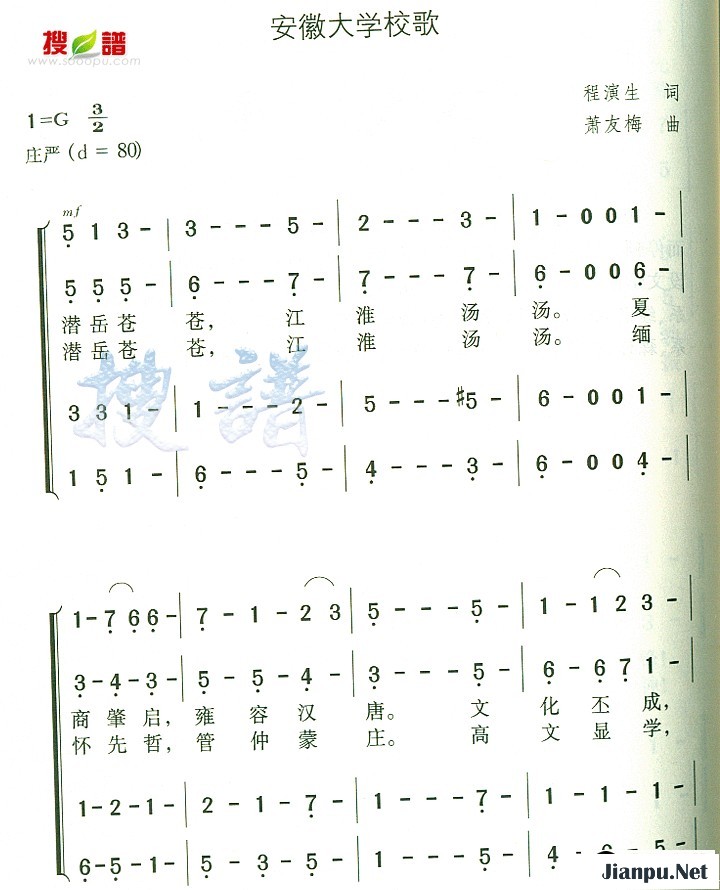 安徽大学校歌
搜谱
www.sooopu.com
程演生 词
1=G 3/2
萧友梅 曲
庄严 (d = 80)
mf
5 1 3 - | 3 - - - 5 - | 2 - - - 3 - | 1 - 0 0 1 - |
5 5 5 - | 6 - - - 7 - | 7 - - - 7 - | 6 - 0 0 6 - |
潜岳苍 苍, 江 淮 汤 汤。 夏
潜岳苍 苍, 江 淮 汤 汤。 缅
搜谱
3 3 1 - | 1 - - - 2 - | 5 - - - #5 - | 6 - 0 0 1 - |
1 5 1 - | 6 - - - 5 - | 4 - - - 3 - | 6 - 0 0 4 - |
1 - 7 6 6 - | 7 - 1 - 2 3 | 5 - - - 5 - | 1 - 1 2 3 - |
3 - 4 - 3 - | 5 - 5 - 4 - | 3 - - - 5 - | 6 - 6 7 1 - |
商 肇 启, 雍 容 汉 唐。 文 化 丕 成,
怀 先 哲, 管 仲 蒙 庄。 高 文 显 学,
1 - 2 - 1 - | 2 - 1 - 7 - | 1 - - - 7 - | 1 - 1 - 1 - |
6 - 5 - 1 - | 5 - 5 - 5 - | 1 - - - 5 - | 4 - 6 5
Jianpu.Net